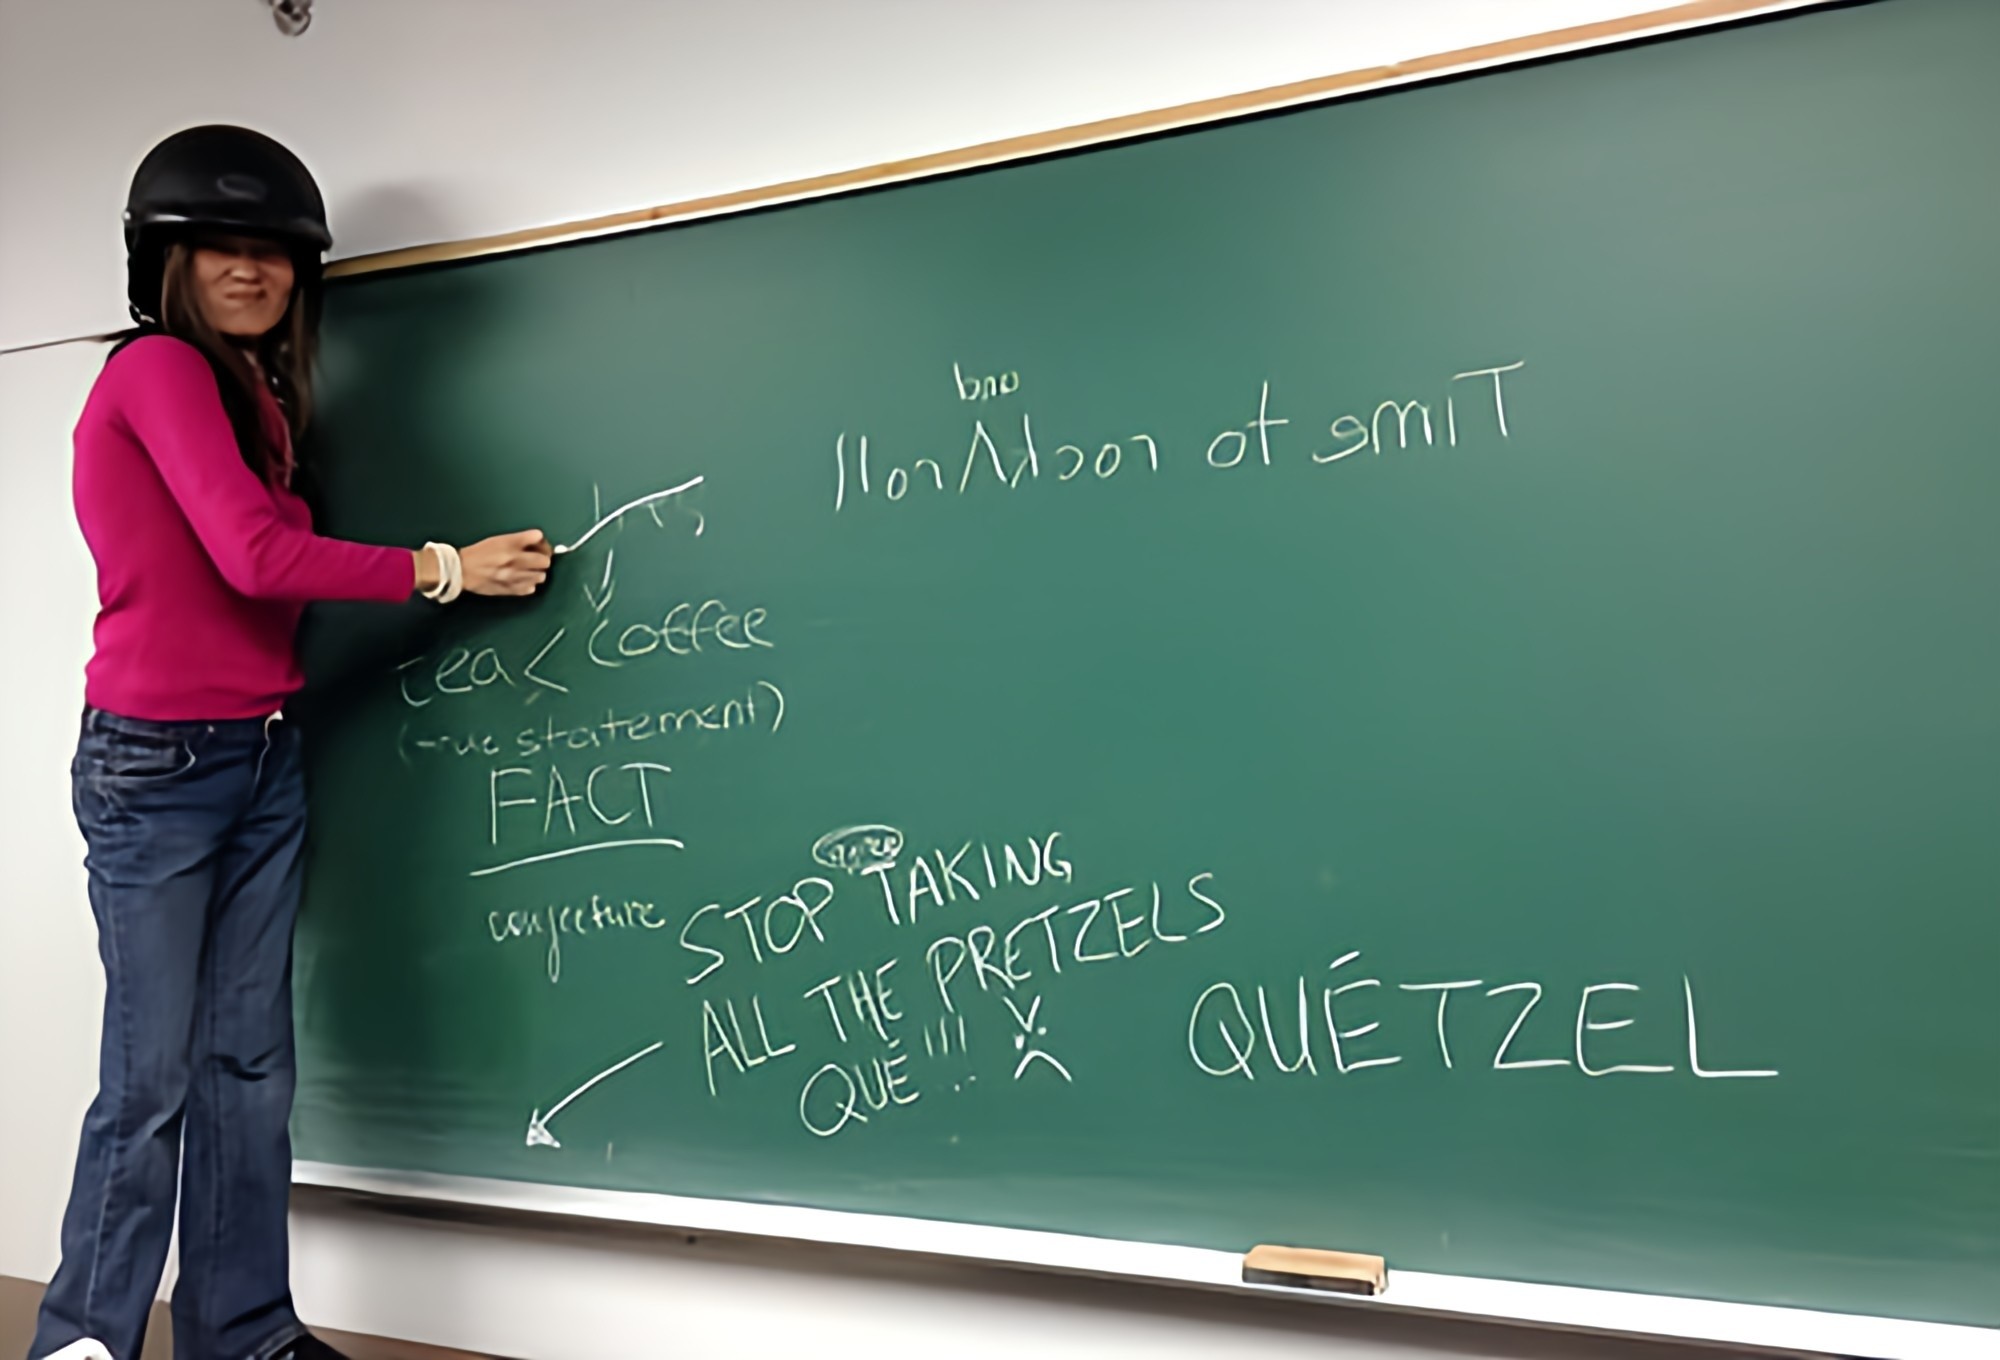 Time to rock and roll
tea < Coffee
(true statement)
FACT
conjecture
STOP TAKING
ALL THE PRETZELS
QUÉ!!!
QUÉTZEL